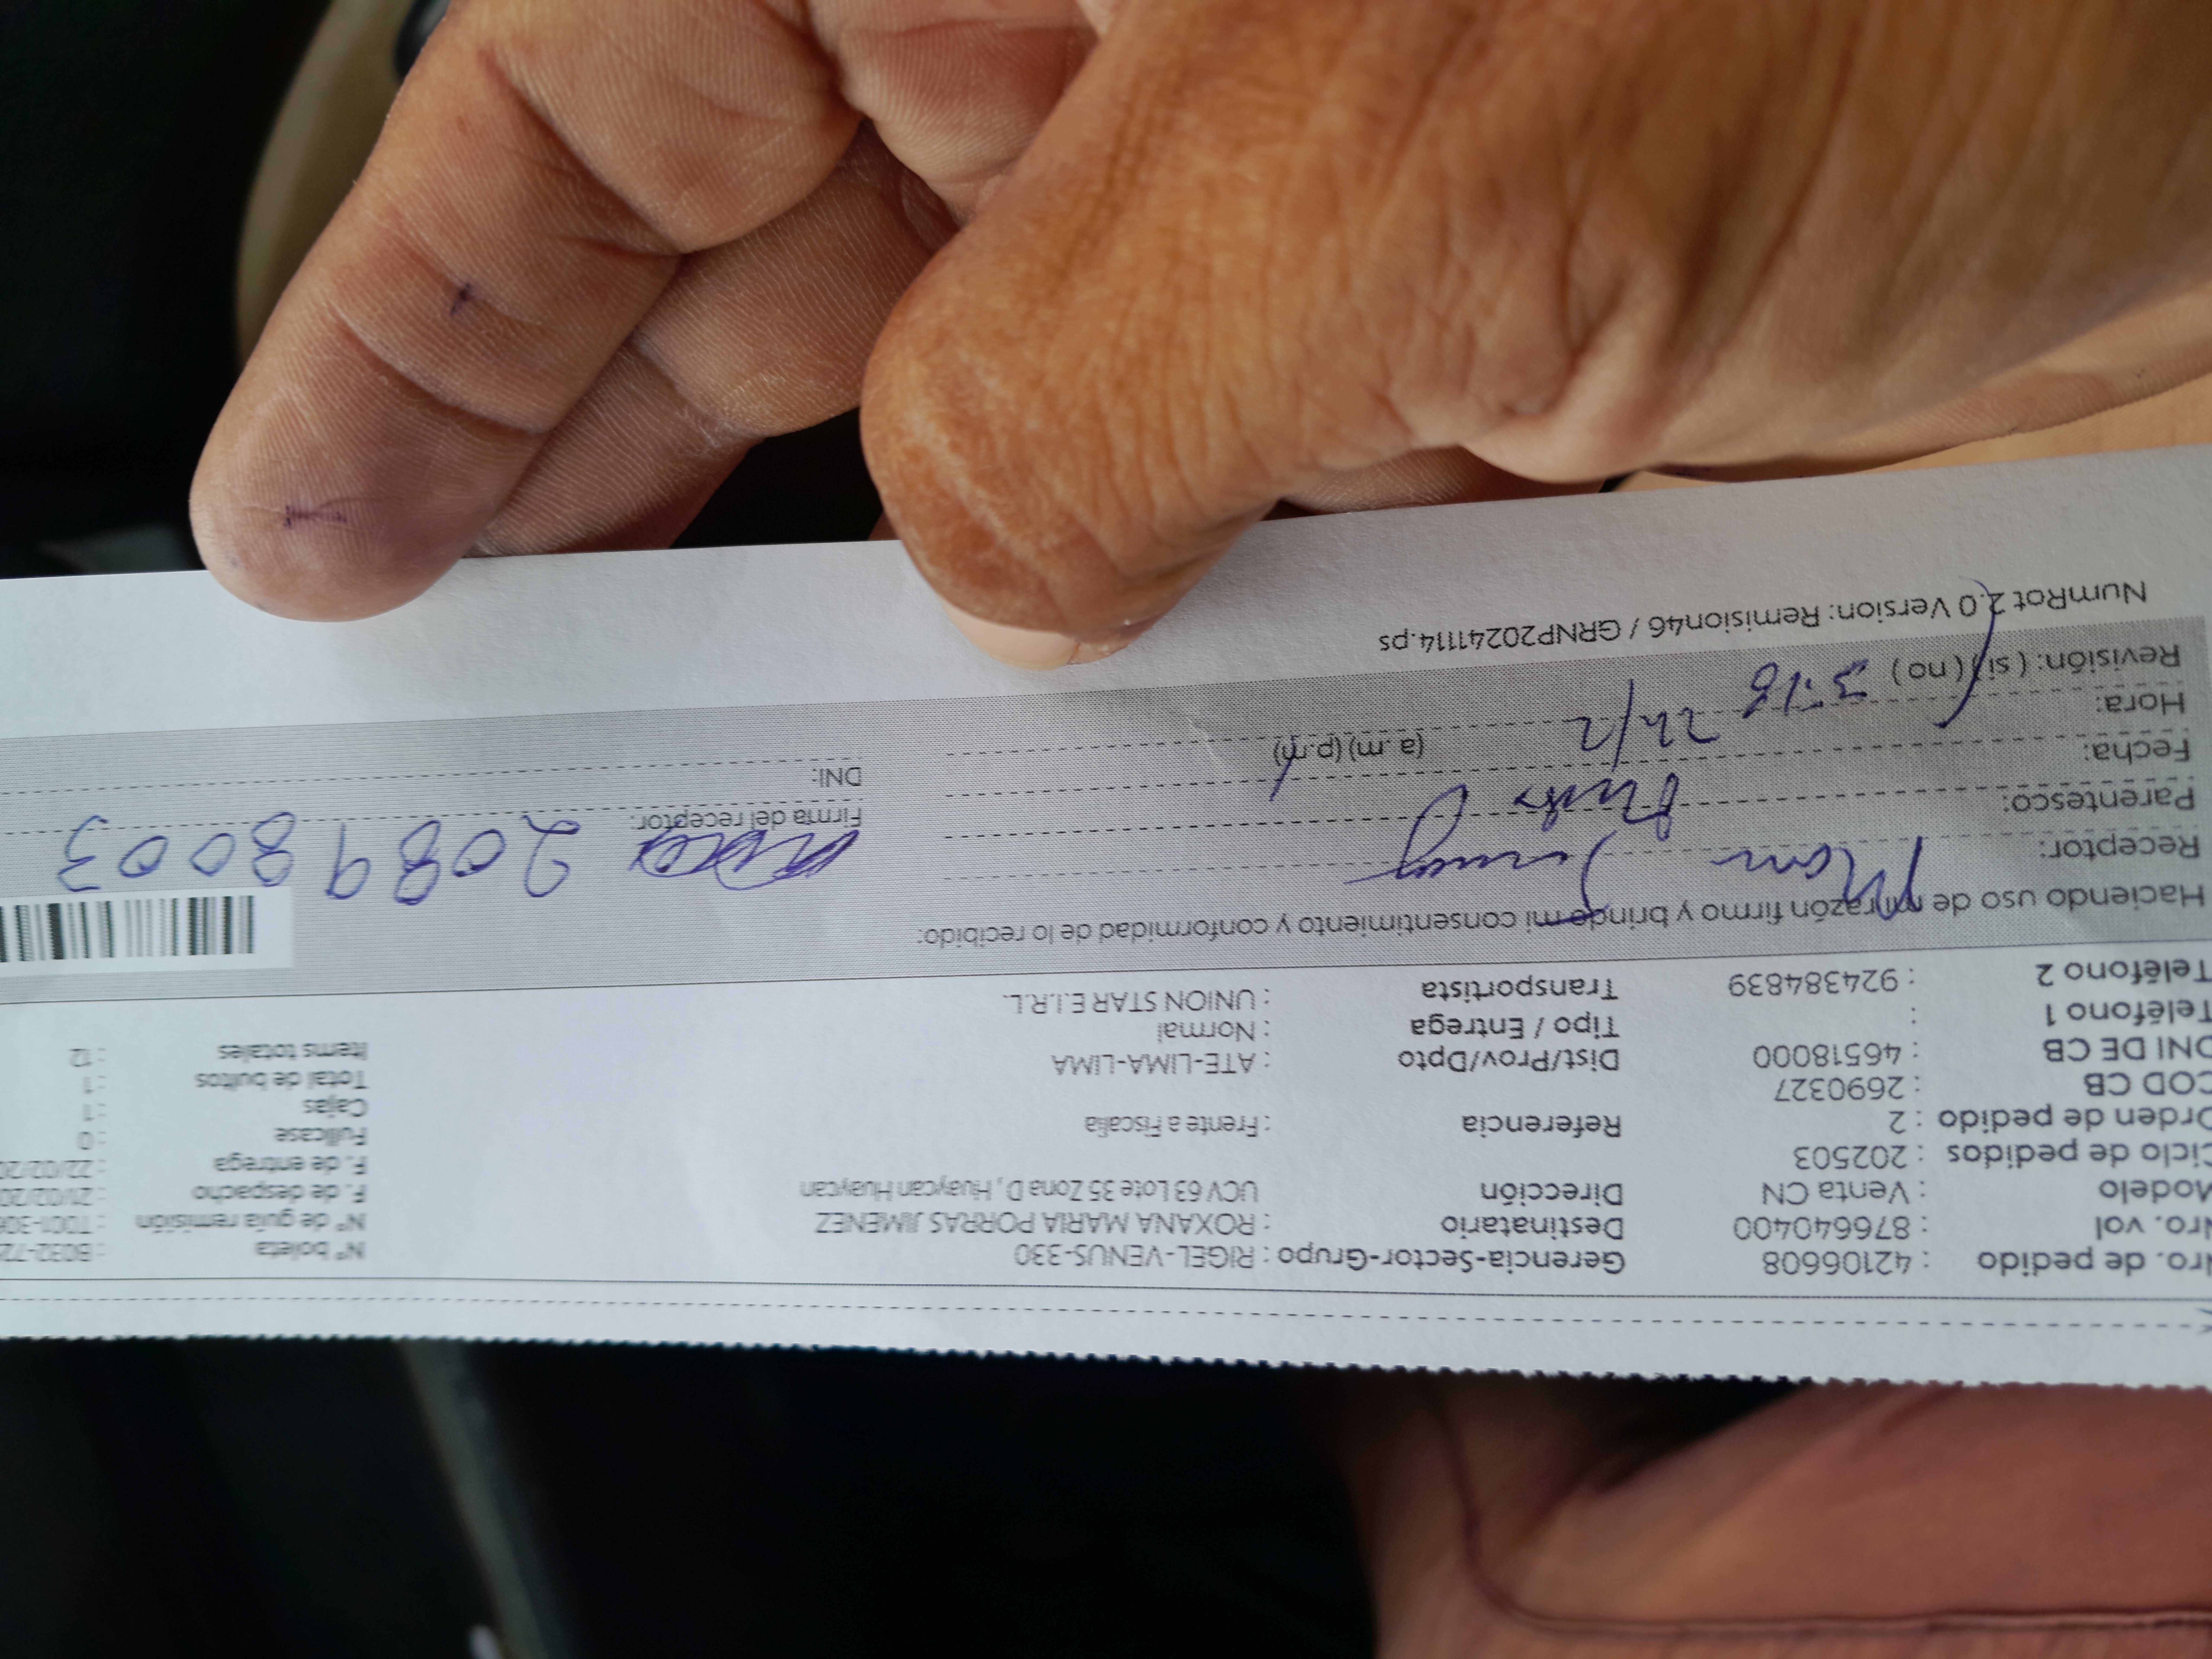 Nro. de pedido : 42106608 Gerencia-Sector-Grupo : RIGEL-VENUS-330 N° boleta : B032-72
Nro. vol : 876640400 Destinatario : ROXANA MARIA PORRAS JIMENEZ N° de guía remisión : T001-306
Modelo : Venta CN Dirección UCV 63 Lote 35 Zona D, Huaycan Huaycan F. de despacho : 21/02/20
Ciclo de pedidos : 202503 F. de entrega : 22/02/20
Orden de pedido : 2 Referencia : Frente a Fiscalia Fullcase : 0
COD CB : 2690327 Cajas : 1
DNI DE CB : 46518000 Dist/Prov/Dpto : ATE-LIMA-LIMA Total de bultos : 1
Teléfono 1 : Tipo / Entrega : Normal Items totales : 12
Teléfono 2 : 924384839 Transportista : UNION STAR E.I.R.L.
Haciendo uso de mi razón firmo y brindo mi consentimiento y conformidad de lo recibido:
Receptor:
Parentesco: Firma del receptor: 20898003
Fecha: 22/2 DNI:
Hora: 3:18 (a.m) (p.m)
Revisión: ( si ) ( no )
NumRot 2.0 Version: Remision46 / GRNP20241114.ps